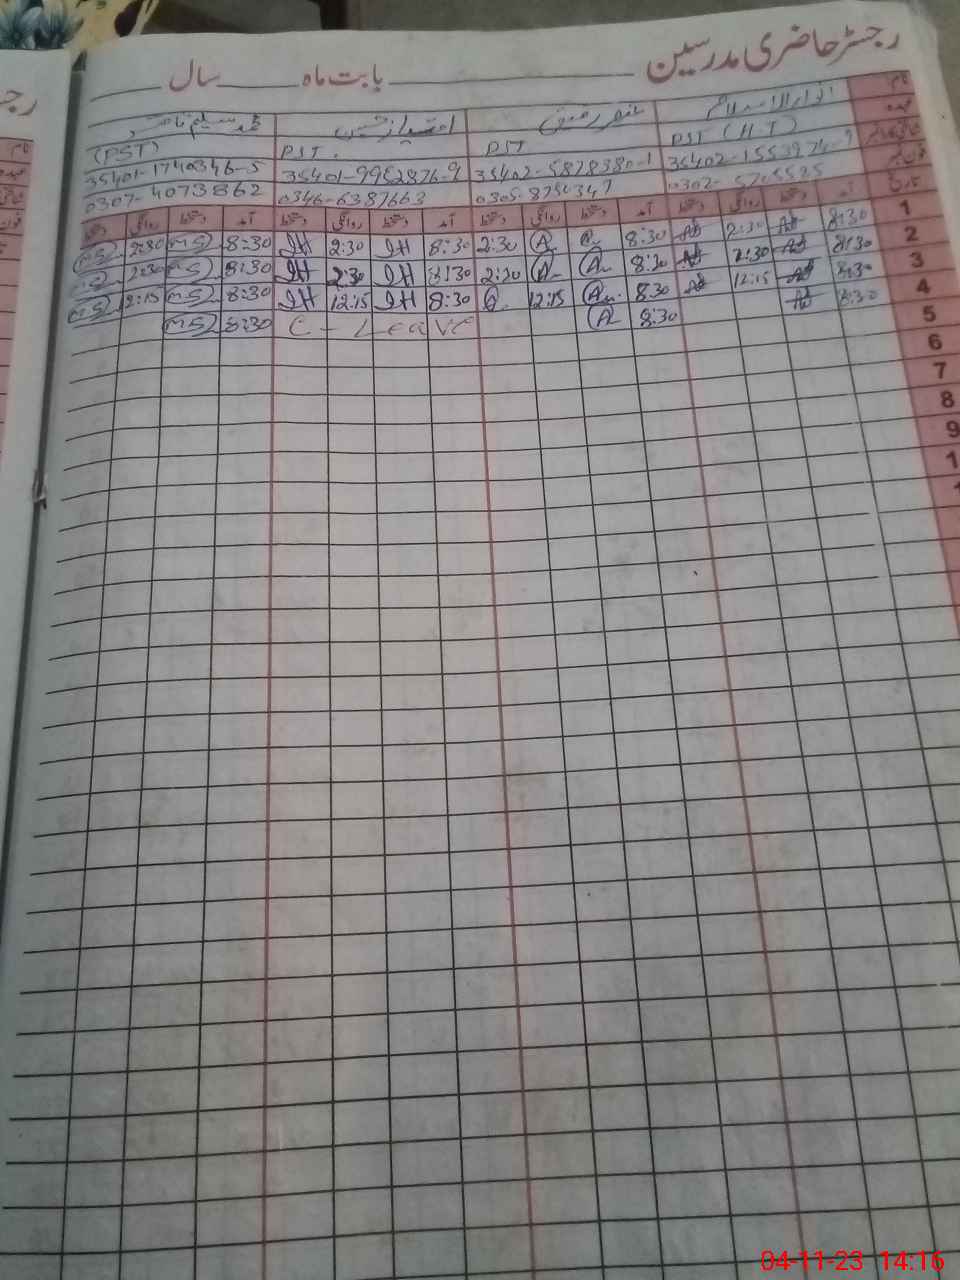 رجسٹر حاضری مدرسین بابت ماہ سال
نام انوار الاسلام امتیاز حسین محمد سلیم ناصر
عہدہ PST (H.T) PST PST. (PST)
35402-1553974-9 35402-5878380-1 35401-9952876-9 35401-1740346-5
0302- 0305-8750347 0346-6387663 0307-4073862
تاریخ آمد دستخط روانگی دستخط آمد دستخط روانگی دستخط آمد دستخط روانگی دستخط آمد دستخط روانگی دستخط
1 8:30 2:30 8:30 2:30 8:30 IH 2:30 IH 8:30 MS 2:30 MS
2 8:30 2:30 8:30 2:30 8:30 IH 2:30 IH 8:30 MS 2:30 MS
3 8:30 12:15 8:30 12:15 8:30 IH 12:15 IH 8:30 MS 12:15 MS
4 8:30 8:30 C-Leave 8:30 MS
5
6
7
8
9
1
1
04-11-23 14:16